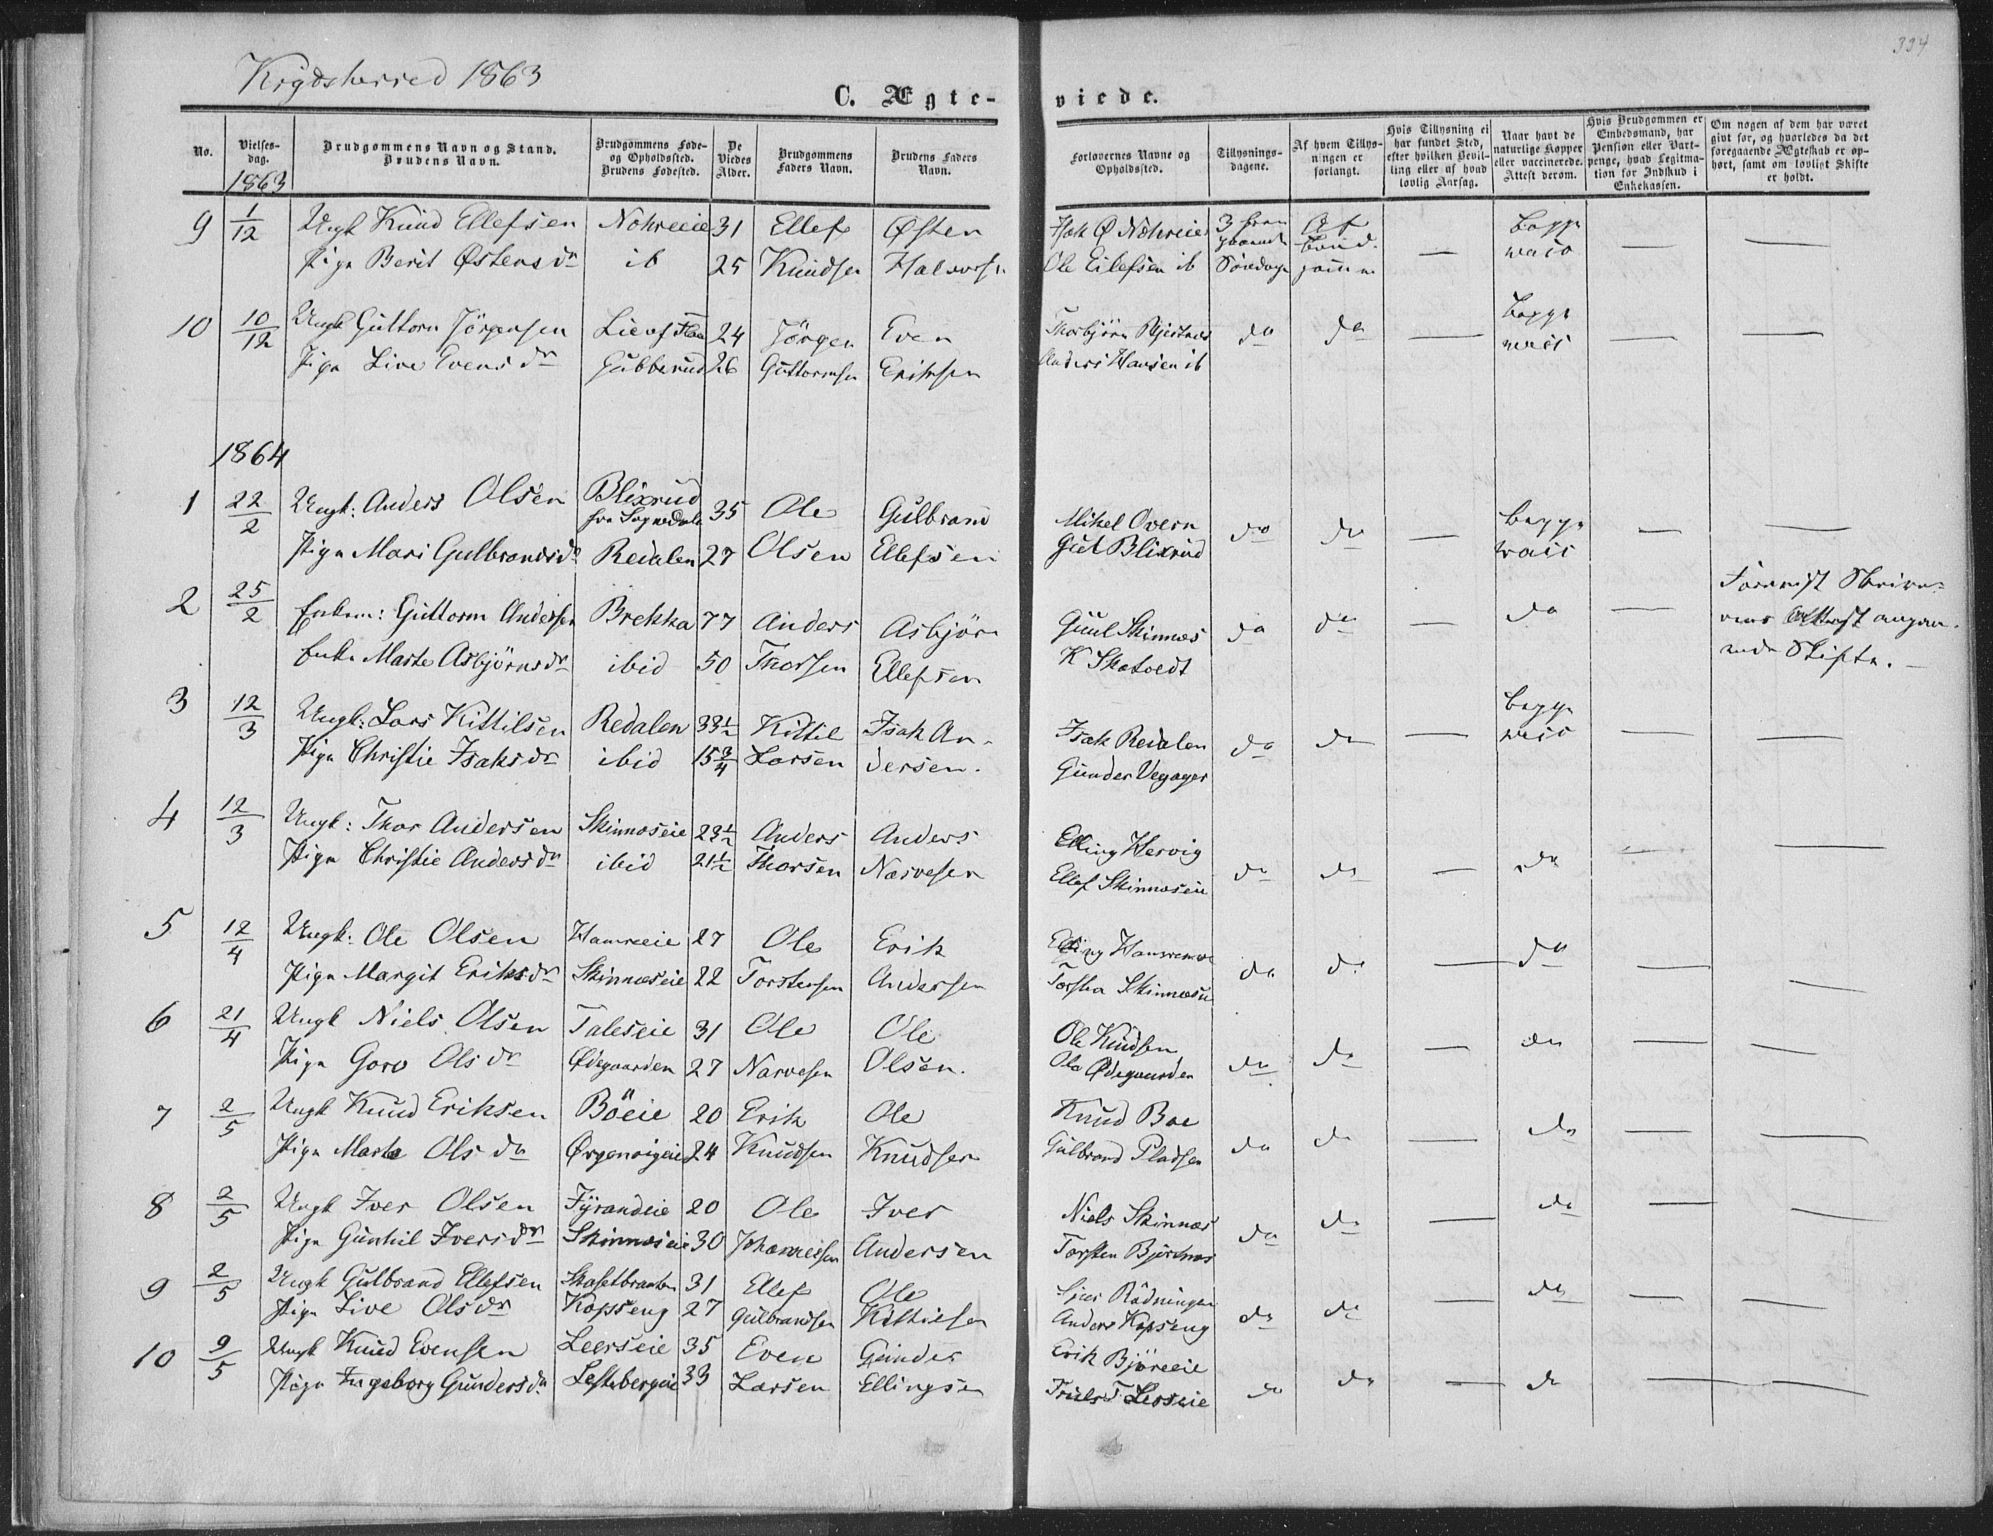 334
Krydsherred 1863
C. Ægte-
viede.
No.
Vielses-
dag.
1863
Brudgommens Navn og Stand.
Brudens Navn.
Brudgommens Føde-
og Opholdssted.
Brudens Fødested.
De
Viedes
Alder.
Brudgommens
Faders Navn.
Brudens Faders
Navn.
Forlovernes Navne og
Opholdssted.
Tillysnings-
dagene.
Af hvem Tillys-
ningen er
forlangt.
Hvis Tillysning ei
har fundet Sted,
efter hvilken Bevil-
ling eller af hvad
lovlig Aarsag.
Naar havt de
naturlige Kopper
eller vaccinerede.
Attest derom.
Hvis Brudgommen er
Embedsmand, har
Pension eller Vart-
penge, hvad Legitima-
tion for Indskud i
Enkekassen.
Om nogen af dem har været
gift før, og hvorledes da det
foregaaende Ægteskab er op-
hørt, samt om lovligt Skifte
er holdt.
9 1/12 Ungk Knud Ellefsen Nohreeie 31 Ellef Østen Hak Ø Nohreeie 3 Begge
Pige Berit Østensdr ib 25 Knudsen Halvorsen Ole Eilefsen ib Søndage — vacc — —
10 10/12 Ungk Guttorm Jörgensen 24 Jörgen Even Thorbjørn do do — Begge vacc — —
Pige Live Evensdr Gubberud 26 Guttormsen Eriksen Anders Hansen ib
1864
1 22/2 Ungk: Anders Olsen Blixrud fra Sognedalen 35 Ole Gulbrand Mikel Overn do do — Begge vacc — —
Pige Mari Gulbrandsdr Redalen 27 Olsen Ellefsen Gul Blixrud
2 25/2 Enkem: Guttorm Andersen Brekka 77 Anders Asbjörn Guul Skinnæs do do — do — Skrive-
Enke Marte Asbjörnsdr ibid 50 Thorsen Ellefsen K Skatvedt Attest angaa-
ende Skifte. —
3 12/3 Ungk: Lars Kittilsen Redalen 33½ Kittil Isak An- Isak Redalen do do — Begge vacc — —
Pige Christie Isaksdr ibid 15¾ Larsen dersen. Gunder Vegager
4 12/3 Ungk: Thor Andersen Skinnæseie 23½ Anders Anders Elling Hervig do do — do — —
Pige Christie Andersdr ibid 21½ Thorsen Narvesen Ellef Skinnæseie
5 12/4 Ungk: Ole Olsen Hamreeie 27 Ole Erik Elling do do — do — —
Pige Margit Eriksdr Skinnæseie 22 Torstensen Andersen
6 21/4 Ungk Niels Olsen Taleseie 31 Ole Ole Ole Knudsen do do — do — —
Pige Goro Olsdr Ødegaarden 27 Narvesen Olsen. Ole Ødegaarden
7 2/5 Ungk Knud Eriksen Böeie 20 Erik Ole Knud Boe do do — do — —
Pige Marte Olsdr 24 Knudsen Knudsen Gulbrand Pladsen
8 2/5 Ungk Iver Olsen Fyrandeie 20 Ole Iver Niels Skinnæs do do — do — —
Pige Gunhil Iversdr Skinnæseie 30 Johannesen Andersen Torsten
9 2/5 Ungk Gulbrand Ellefsen Skasetbraaten 31 Ellef Ole do do — do — —
Pige Live Olsdr Kopseng 27 Gulbrandsen Kittilsen Anders Kopseng
10 9/5 Ungk Knud Evensen Leerseie 35 Even Gunder Erik Björeeie do do — do — —
Pige Ingeborg Gundersdr 33 Larsen Ellingsen